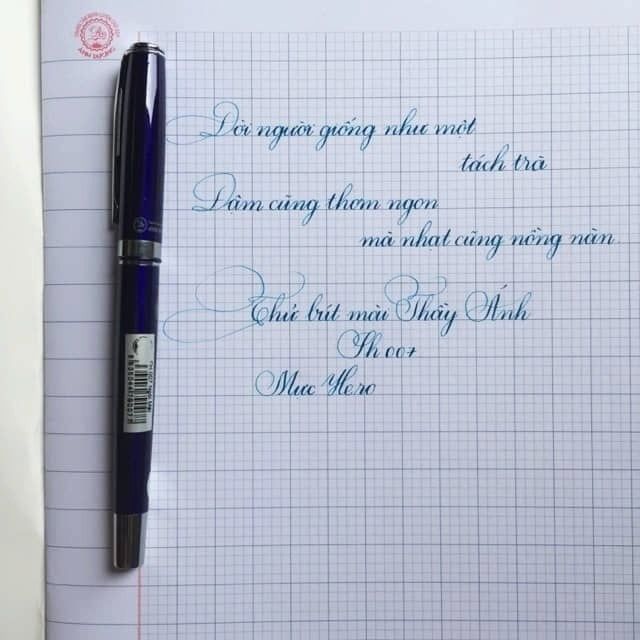 ÁNH DƯƠNG
Đời người giống như một
tách trà
Đậm cũng thơm ngon
mà nhạt cũng nồng nàn.
Thử bút mài Thầy Ánh
Sh 007
Mực Hero